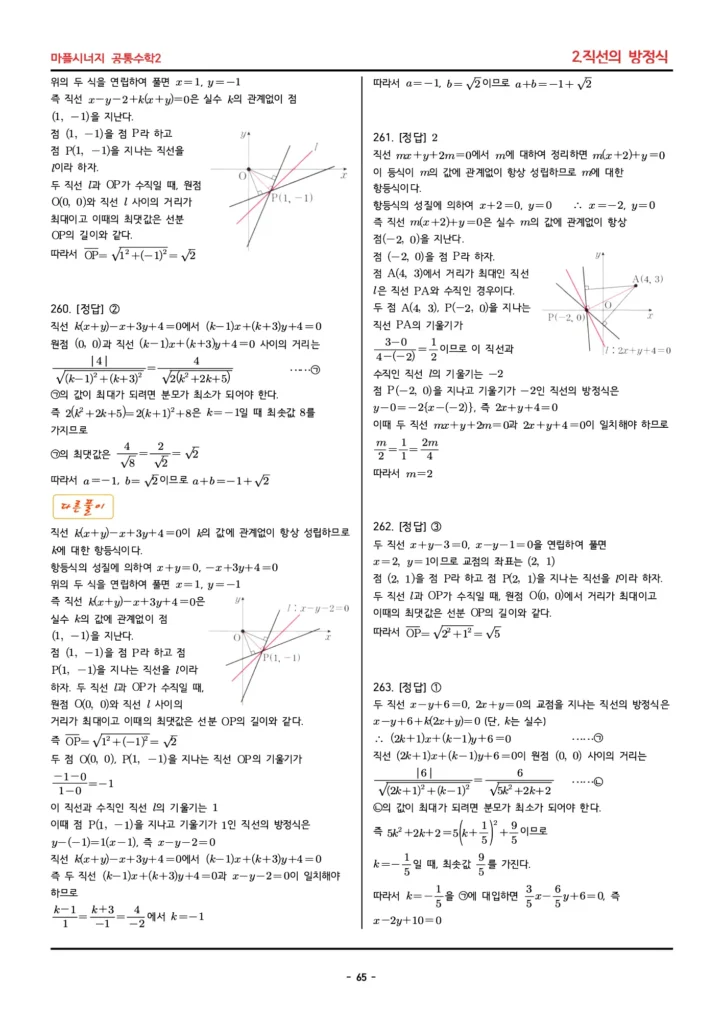 마플시너지 공통수학2
2.직선의 방정식
위의 두 식을 연립하여 풀면 x=1, y=−1
즉 직선 x−y−2+k(x+y)=0은 실수 k의 관계없이 점
(1, −1)을 지난다.
점 (1, −1)을 점 P라 하고
점 P(1, −1)을 지나는 직선을
l이라 하자.
두 직선 l과 OP가 수직일 때, 원점
O(0, 0)와 직선 l 사이의 거리가
최대이고 이때의 최댓값은 선분
OP의 길이와 같다.
따라서 \overline{OP}=√(1²+(−1)²)=√2
y
l
O
x
P(1, −1)
260. [정답] ②
직선 k(x+y)−x+3y+4=0에서 (k−1)x+(k+3)y+4=0
원점 (0, 0)과 직선 (k−1)x+(k+3)y+4=0 사이의 거리는
|4|/√((k−1)²+(k+3)²)=4/√(2(k²+2k+5)) ······㉠
㉠의 값이 최대가 되려면 분모가 최소가 되어야 한다.
즉 2(k²+2k+5)=2(k+1)²+8은 k=−1일 때 최솟값 8를
가지므로
㉠의 최댓값은 4/√8=2/√2=√2
따라서 a=−1, b=√2이므로 a+b=−1+√2
다른풀이
직선 k(x+y)−x+3y+4=0이 k의 값에 관계없이 항상 성립하므로
k에 대한 항등식이다.
항등식의 성질에 의하여 x+y=0, −x+3y+4=0
위의 두 식을 연립하여 풀면 x=1, y=−1
즉 직선 k(x+y)−x+3y+4=0은
실수 k의 값에 관계없이 점
(1, −1)을 지난다.
점 (1, −1)을 점 P라 하고 점
P(1, −1)을 지나는 직선을 l이라
하자. 두 직선 l과 OP가 수직일 때,
원점 O(0, 0)와 직선 l 사이의
거리가 최대이고 이때의 최댓값은 선분 OP의 길이와 같다.
y
l : x−y−2=0
O
x
P(1, −1)
즉 \overline{OP}=√(1²+(−1)²)=√2
두 점 O(0, 0), P(1, −1)을 지나는 직선 OP의 기울기가
(−1−0)/(1−0)=−1
이 직선과 수직인 직선 l의 기울기는 1
이때 점 P(1, −1)을 지나고 기울기가 1인 직선의 방정식은
y−(−1)=1(x−1), 즉 x−y−2=0
직선 k(x+y)−x+3y+4=0에서 (k−1)x+(k+3)y+4=0
즉 두 직선 (k−1)x+(k+3)y+4=0과 x−y−2=0이 일치해야
하므로
(k−1)/1=(k+3)/−1=4/−2에서 k=−1
따라서 a=−1, b=√2이므로 a+b=−1+√2
261. [정답] 2
직선 mx+y+2m=0에서 m에 대하여 정리하면 m(x+2)+y=0
이 등식이 m의 값에 관계없이 항상 성립하므로 m에 대한
항등식이다.
항등식의 성질에 의하여 x+2=0, y=0 ∴ x=−2, y=0
즉 직선 m(x+2)+y=0은 실수 m의 값에 관계없이 항상
점(−2, 0)을 지난다.
점 (−2, 0)을 점 P라 하자.
점 A(4, 3)에서 거리가 최대인 직선
l은 직선 PA와 수직인 경우이다.
두 점 A(4, 3), P(−2, 0)을 지나는
직선 PA의 기울기가
(3−0)/(4−(−2))=1/2이므로 이 직선과
수직인 직선 l의 기울기는 −2
y
A(4, 3)
O
P(−2, 0)
x
l : 2x+y+4=0
점 P(−2, 0)을 지나고 기울기가 −2인 직선의 방정식은
y−0=−2{x−(−2)}, 즉 2x+y+4=0
이때 두 직선 mx+y+2m=0과 2x+y+4=0이 일치해야 하므로
m/2=1/1=2m/4
따라서 m=2
262. [정답] ③
두 직선 x+y−3=0, x−y−1=0을 연립하여 풀면
x=2, y=1이므로 교점의 좌표는 (2, 1)
점 (2, 1)을 점 P라 하고 점 P(2, 1)을 지나는 직선을 l이라 하자.
두 직선 l과 OP가 수직일 때, 원점 O(0, 0)에서 거리가 최대이고
이때의 최댓값은 선분 OP의 길이와 같다.
따라서 \overline{OP}=√(2²+1²)=√5
263. [정답] ①
두 직선 x−y+6=0, 2x+y=0의 교점을 지나는 직선의 방정식은
x−y+6+k(2x+y)=0 (단, k는 실수)
∴ (2k+1)x+(k−1)y+6=0 ······㉠
직선 (2k+1)x+(k−1)y+6=0이 원점 (0, 0) 사이의 거리는
|6|/√((2k+1)²+(k−1)²)=6/√(5k²+2k+2) ······㉡
㉡의 값이 최대가 되려면 분모가 최소가 되어야 한다.
즉 5k²+2k+2=5(k+1/5)²+9/5이므로
k=−1/5일 때, 최솟값 9/5를 가진다.
따라서 k=−1/5을 ㉠에 대입하면 3/5x−6/5y+6=0, 즉
x−2y+10=0
- 65 -